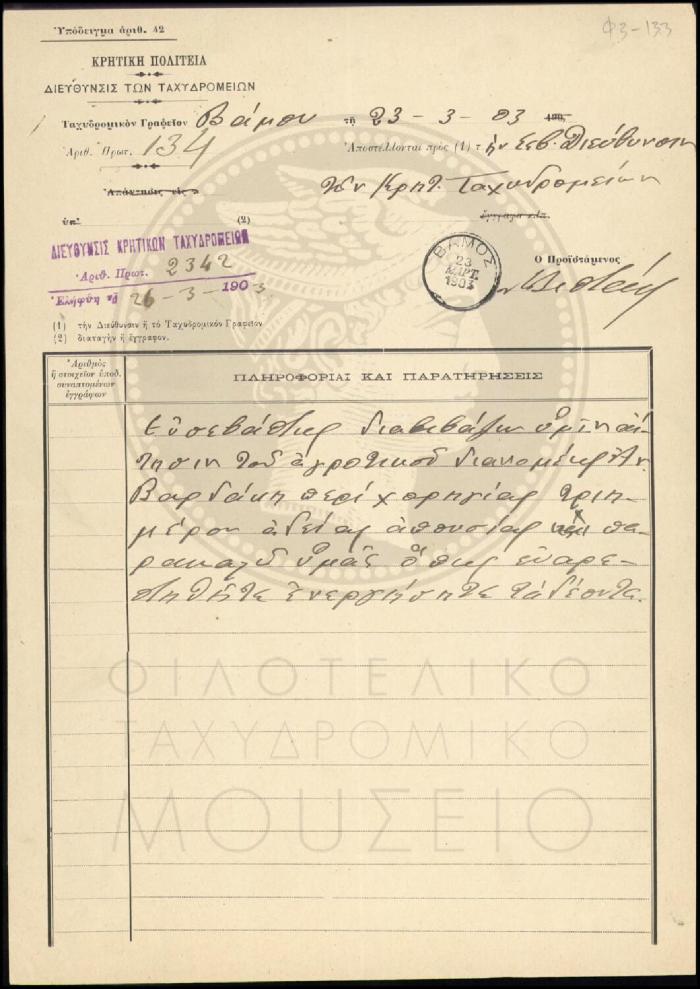 Ὑπόδειγμα ἀριθ. 42
Φ3-133
ΚΡΗΤΙΚΗ ΠΟΛΙΤΕΙΑ
ΔΙΕΥΘΥΝΣΙΣ ΤΩΝ ΤΑΧΥΔΡΟΜΕΙΩΝ
Ταχυδρομικὸν Γραφεῖον Βάμου τῇ 23 - 3 - 03 190
Ἀριθ. Πρωτ. 134 Ἀποστέλλονται πρὸς (1) τὴν Σεβ. Διεύθυνσιν
τῶν Κρητ. Ταχυδρομείων
Ἀπάντησις εἰς
ὑπ' (2)
ἔγγραφα
ΔΙΕΥΘΥΝΣΙΣ ΚΡΗΤΙΚΩΝ ΤΑΧΥΔΡΟΜΕΙΩΝ
Ἀριθ. Πρωτ. 2342
Ἐλήφθη τῇ 26-3-1903
ΒΑΜΟΣ
23
ΜΑΡΤ.
1903
Ὁ Προϊστάμενος
(1) τὴν Διεύθυνσιν ἢ τὸ Ταχυδρομικὸν Γραφεῖον
(2) διαταγὴν ἢ ἔγγραφον.
Ἀριθμὸς
ἢ στοιχεῖον ὑποβ.
συναπτομένων
ἐγγράφων
ΠΛΗΡΟΦΟΡΙΑΙ ΚΑΙ ΠΑΡΑΤΗΡΗΣΕΙΣ
Εὐσεβάστως διαβιβάζων ὑμῖν αἴ-
τησιν τοῦ ἀγροτικοῦ διανομέως Ἀν.
Βαρδάκη περὶ χορηγίας τριη-
μέρου ἀδείας ἀπουσίας πα-
ρακαλῶ ὑμᾶς ὅπως εὐαρε-
στηθῆτε ἐνεργήσητε τὰ δέοντα.
ΦΙΛΟΤΕΛΙΚΟ
ΤΑΧΥΔΡΟΜΙΚΟ
ΜΟΥΣΕΙΟ